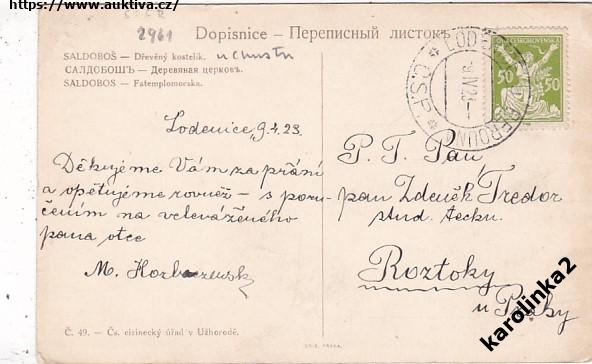 https://www.auktiva.cz/
2961
Dopisnice - Переписный листокъ
SALDOBOŠ — Dřevěný kostelík. u Chustu
САЛДОБОШЪ — Деревяная церковъ.
SALDOBOS — Fatemplomocska.
ČESKOSLOVENSKÁ
50 50
Lodenice 9.4.23
Děkujeme Vám za přání
a opětujeme rovněž – s poru-
čením na velevážného
pana otce
P. T. Pan,
pan Zdeněk Tredor
stud. techn.
Roztoky
u Prahy
Č. 49. — Čs. cizinecký úřad v Užhorodě.
karolinka2